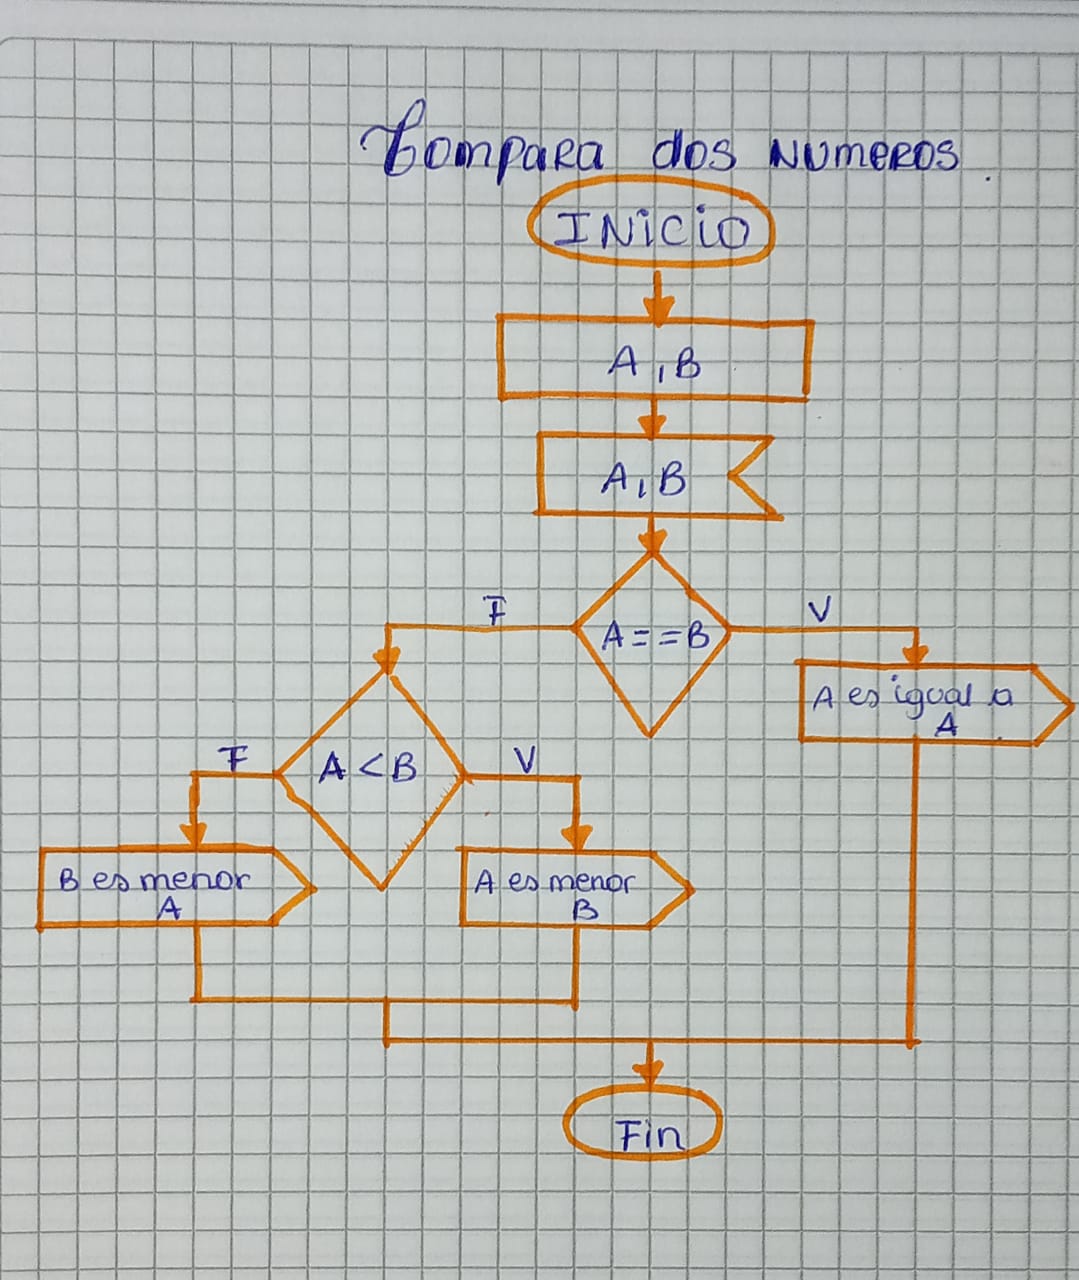 Compara dos numeros.
INicio
A, B
A, B
A==B
F
V
A es igual a
A
A<B
F
V
B es menor
A
A es menor
B
Fin